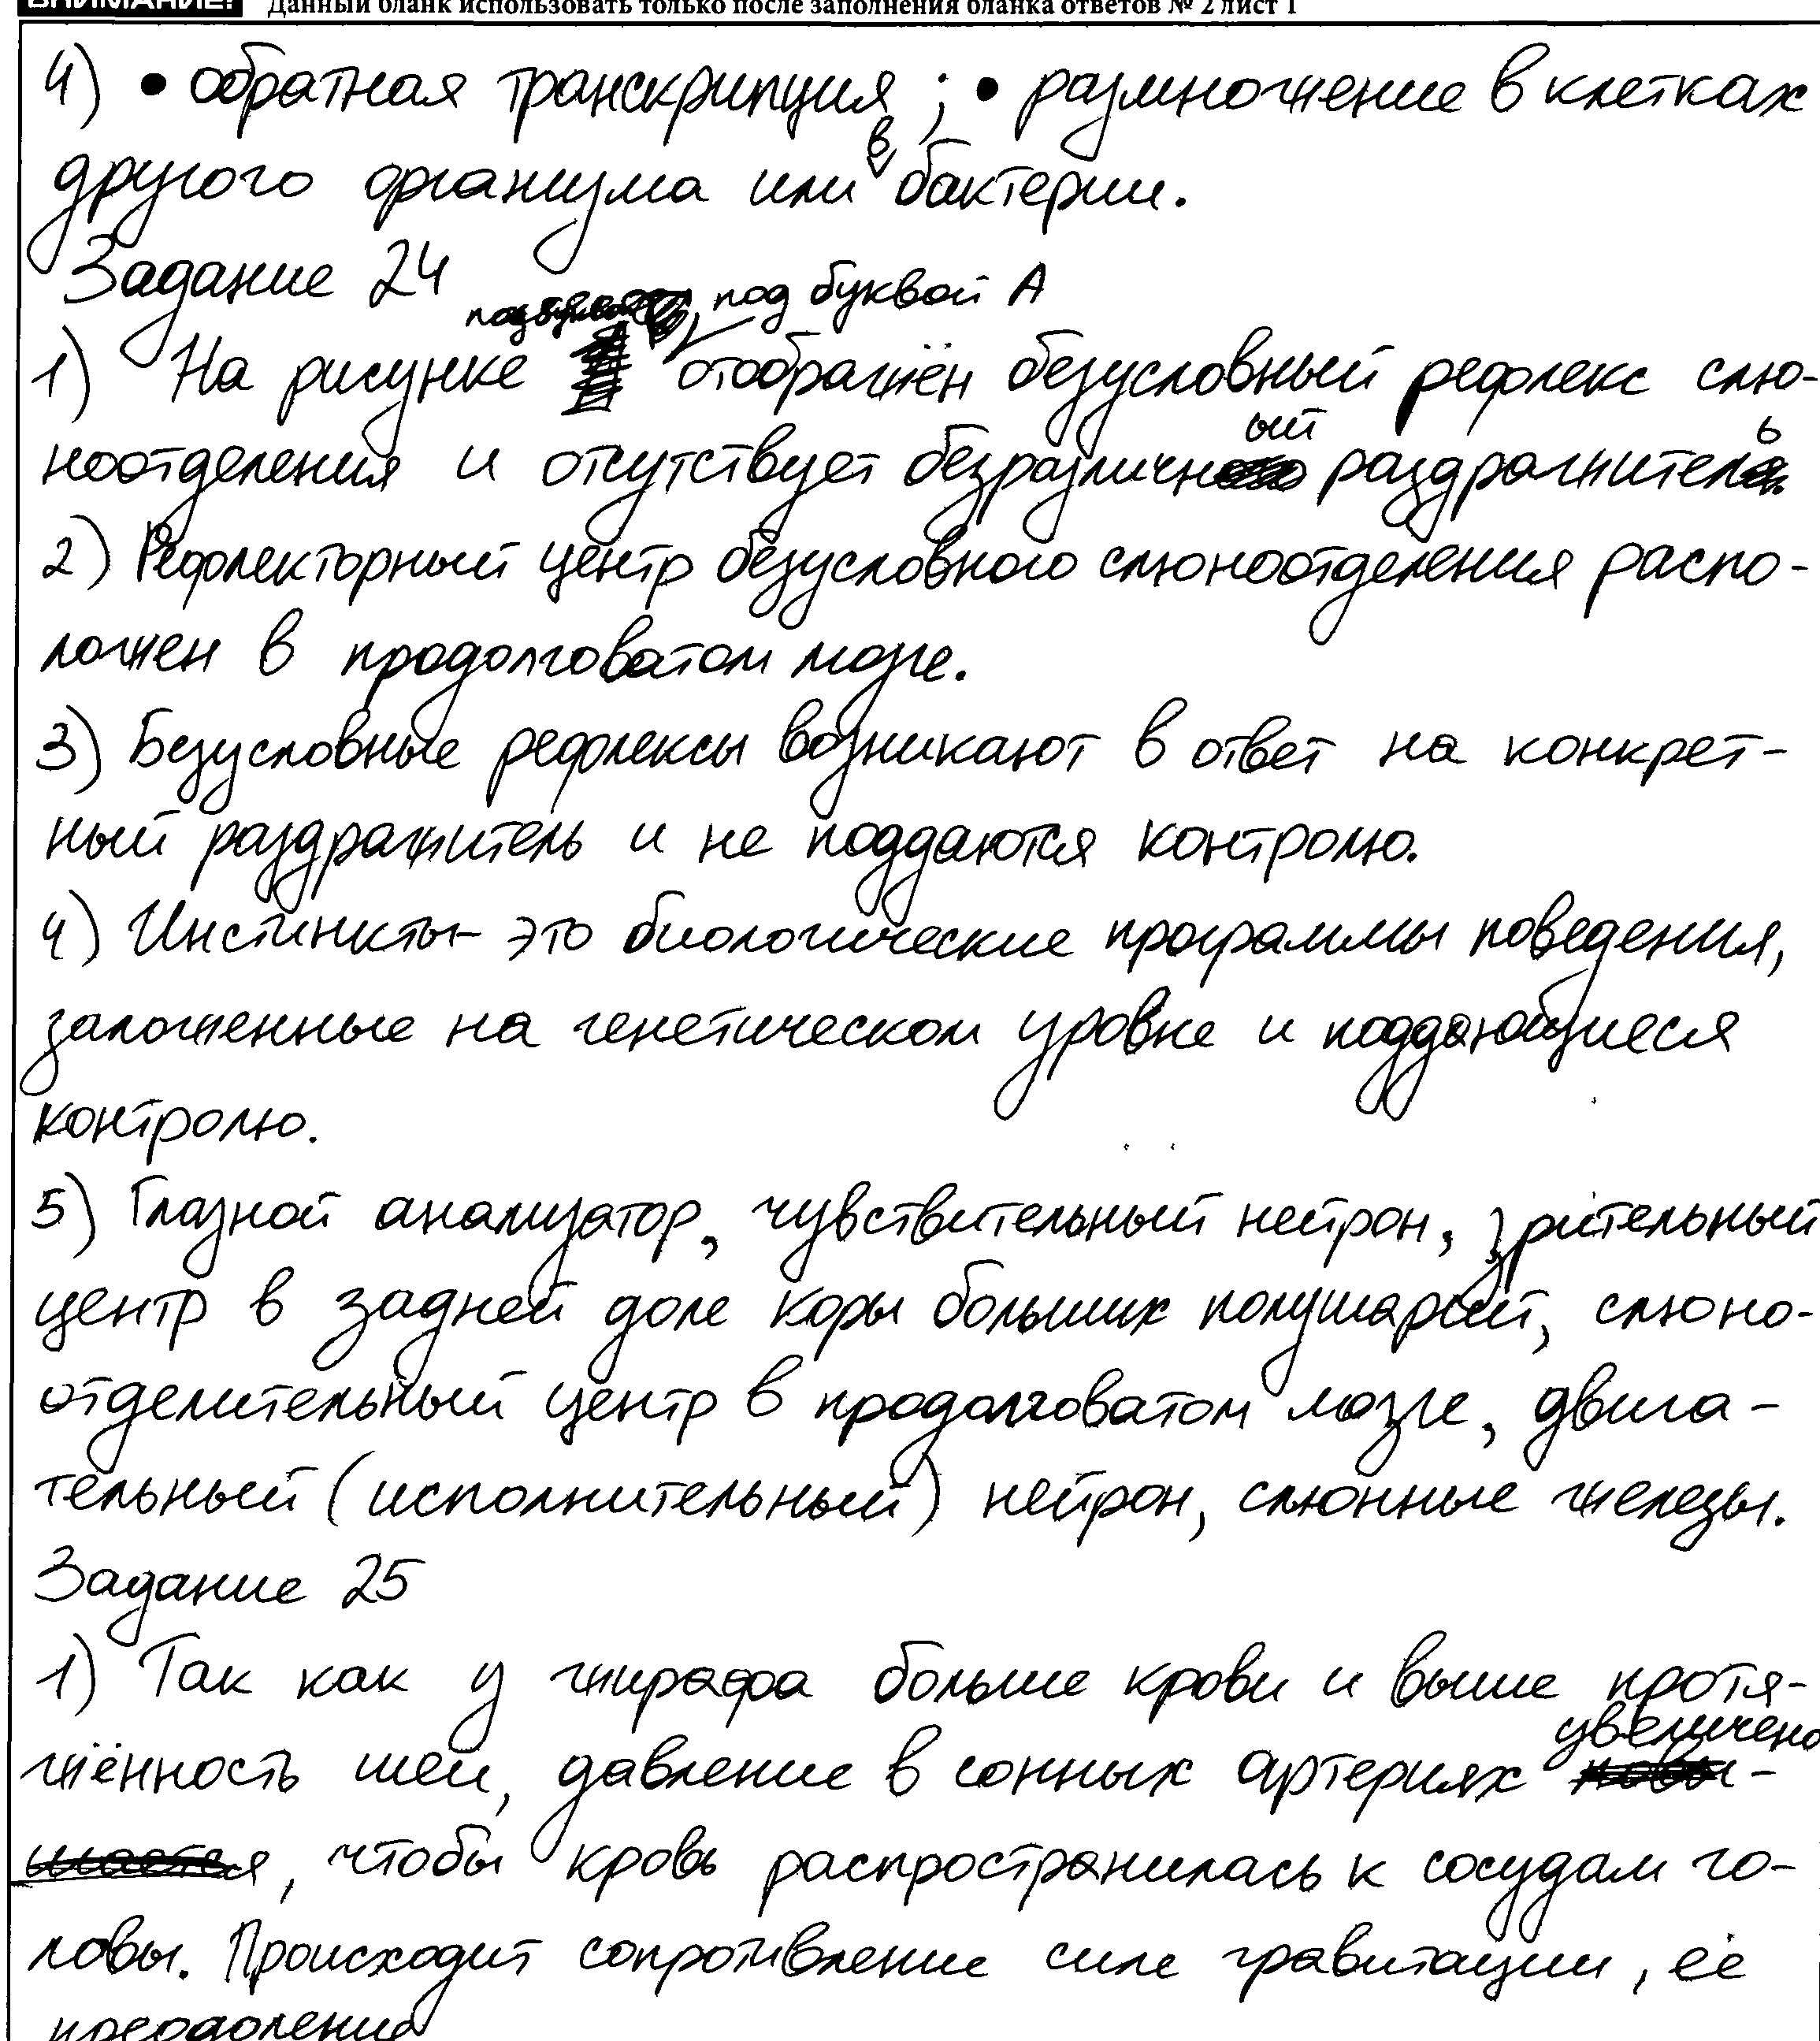 ВНИМАНИЕ! Данный бланк использовать только после заполнения бланка ответов № 2 лист 1
4) • обратная транскрипция ; • размножение в клетках
другого организма или в бактерии.
Задание 24
под буквой А
1) На рисунке отображён безусловный рефлекс слю-
ноотделения и отсутствует безразличный раздражитель
2) Рефлекторный центр безусловного слюноотделения распо-
ложен в продолговатом мозге.
3) Безусловные рефлексы возникают в ответ на конкрет-
ный раздражитель и не поддаются контролю.
4) Инстинкты- это биологические программы поведения,
заложенные на генетическом уровне и поддающиеся
контролю.
5) Глазной анализатор, чувствительный нейрон, зрительный
центр в задней доле коры больших полушарий, слюно-
отделительный центр в продолговатом мозге, двига-
тельный (исполнительный) нейрон, слюнные железы.
Задание 25
1) Так как у жирафа больше крови и выше протя-
жённость шеи, давление в сонных артериях увеличено
, чтобы кровь распространилась к сосудам го-
ловы. Происходит сопротивление силе гравитации, её
преодоление